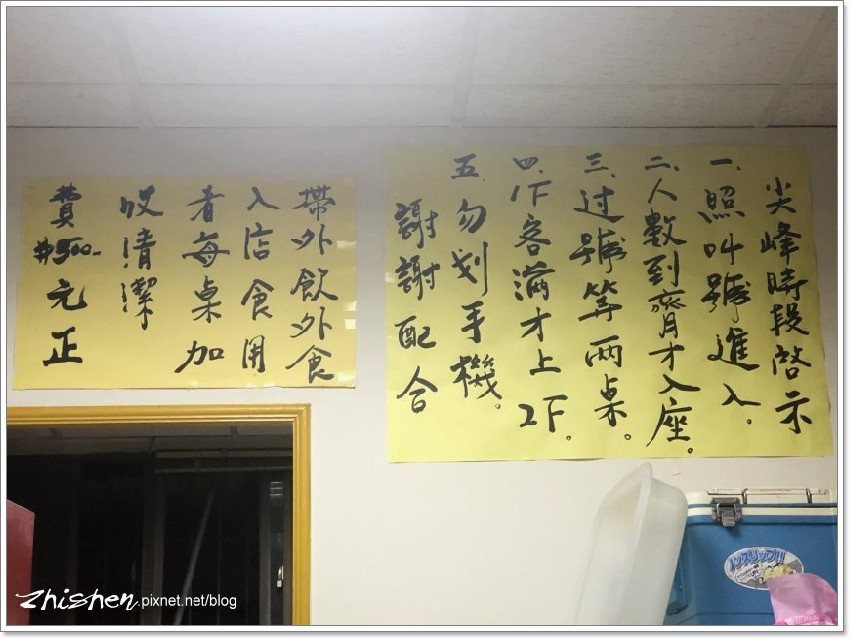 尖峰時段啓示
一.照叫號進入。
二.人數到齊才入座。
三.过號等兩桌。
四.1F客滿才上2F。
五.勿划手機。
謝謝配合
帶外飲外食
入店食用
者每桌加
收清潔
費$500-元正
ノンスリップ!!
zhishen.pixnet.net/blog